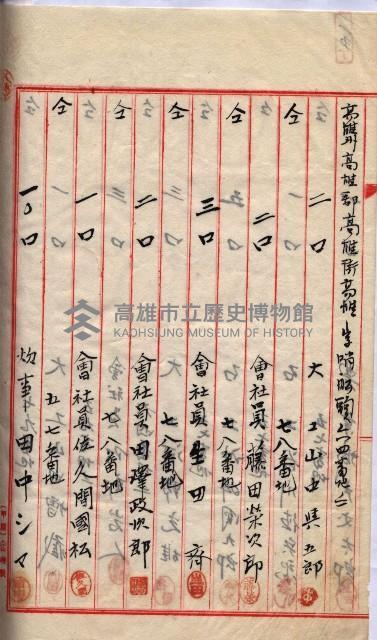 高雄州高雄郡高雄街高雄字哨船頭
二口
大工山中與五郎
仝
七八番地
二口
會社員藤田榮次郎
仝
七八番地
三口
會社員生田齊
仝
七八番地
二口
會社員田邊政次郎
仝
七八番地
一口
會社員佐久間國松
仝
五七番地
一〇口
炊事田中シマ
高雄市立歷史博物館
KAOHSIUNG MUSEUM OF HISTORY